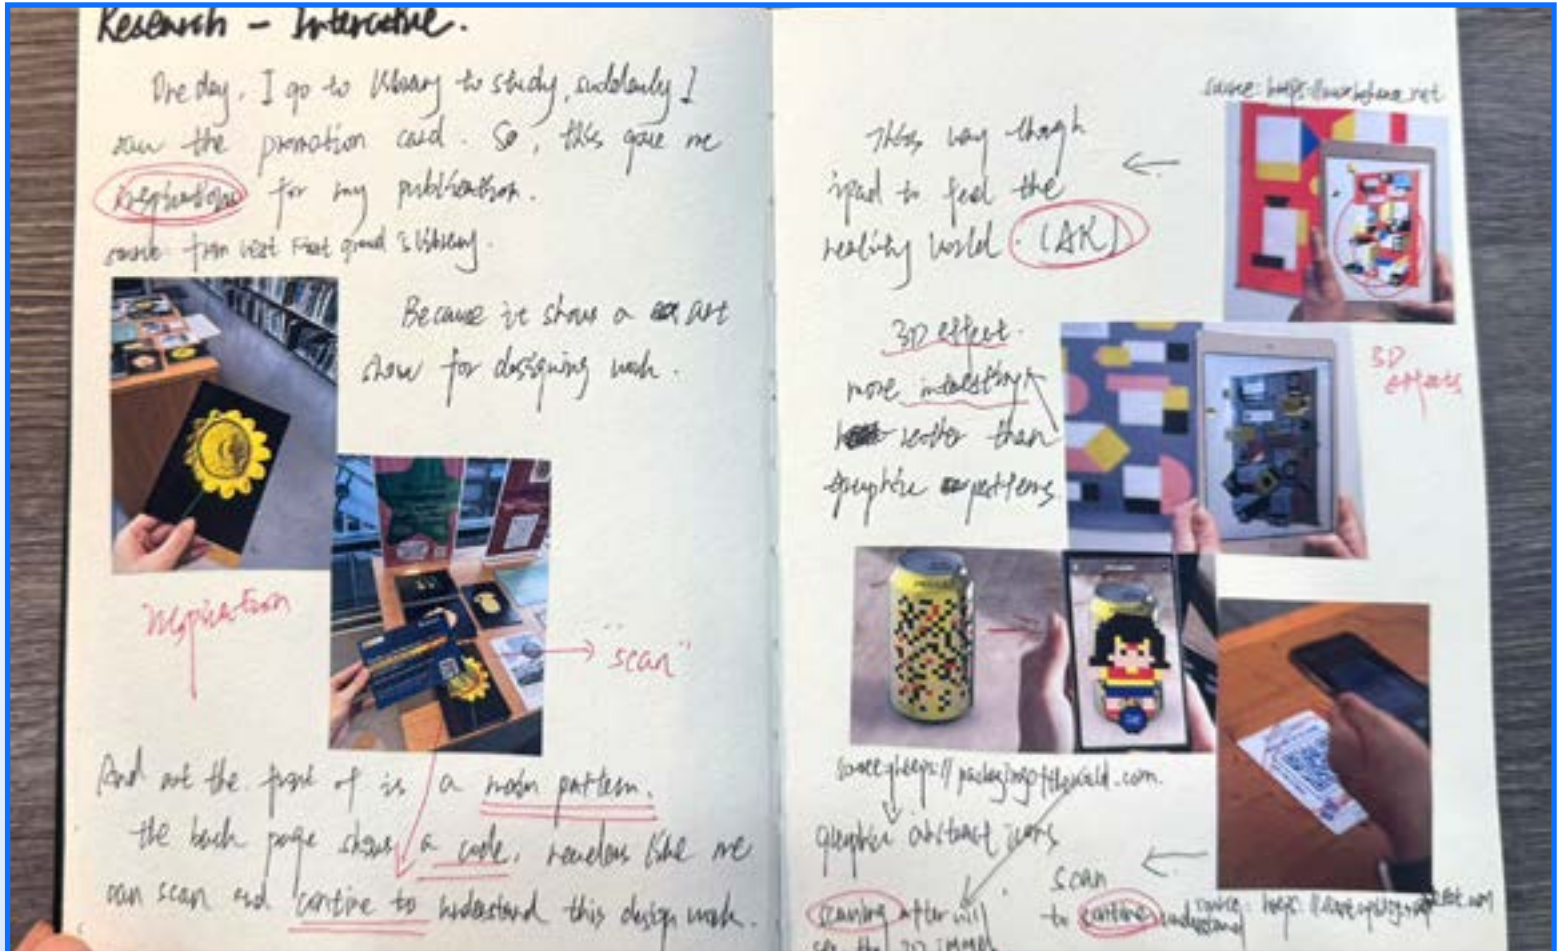 Research - Interactive.
One day, I go to library to study, suddenly I
saw the promotion card. So, this gave me
inspiration for my publication.
source: from West First ground's library.
Because it shows a art
show for designing work.
inspiration
"scan"
And at the front of is a main pattern.
the back page shows a code, readers like me
can scan and contine to understand this design work.
source: https://www.behance.net
This way though
ipad to feel the
reality world. (AR)
3D effect.
more interesting
rather than
graphic patterns
3D
effects
source: https://packagingoftheworld.com.
graphic abstract icons
scaning after will
see the 3D
scan
to contine understand
source: https://